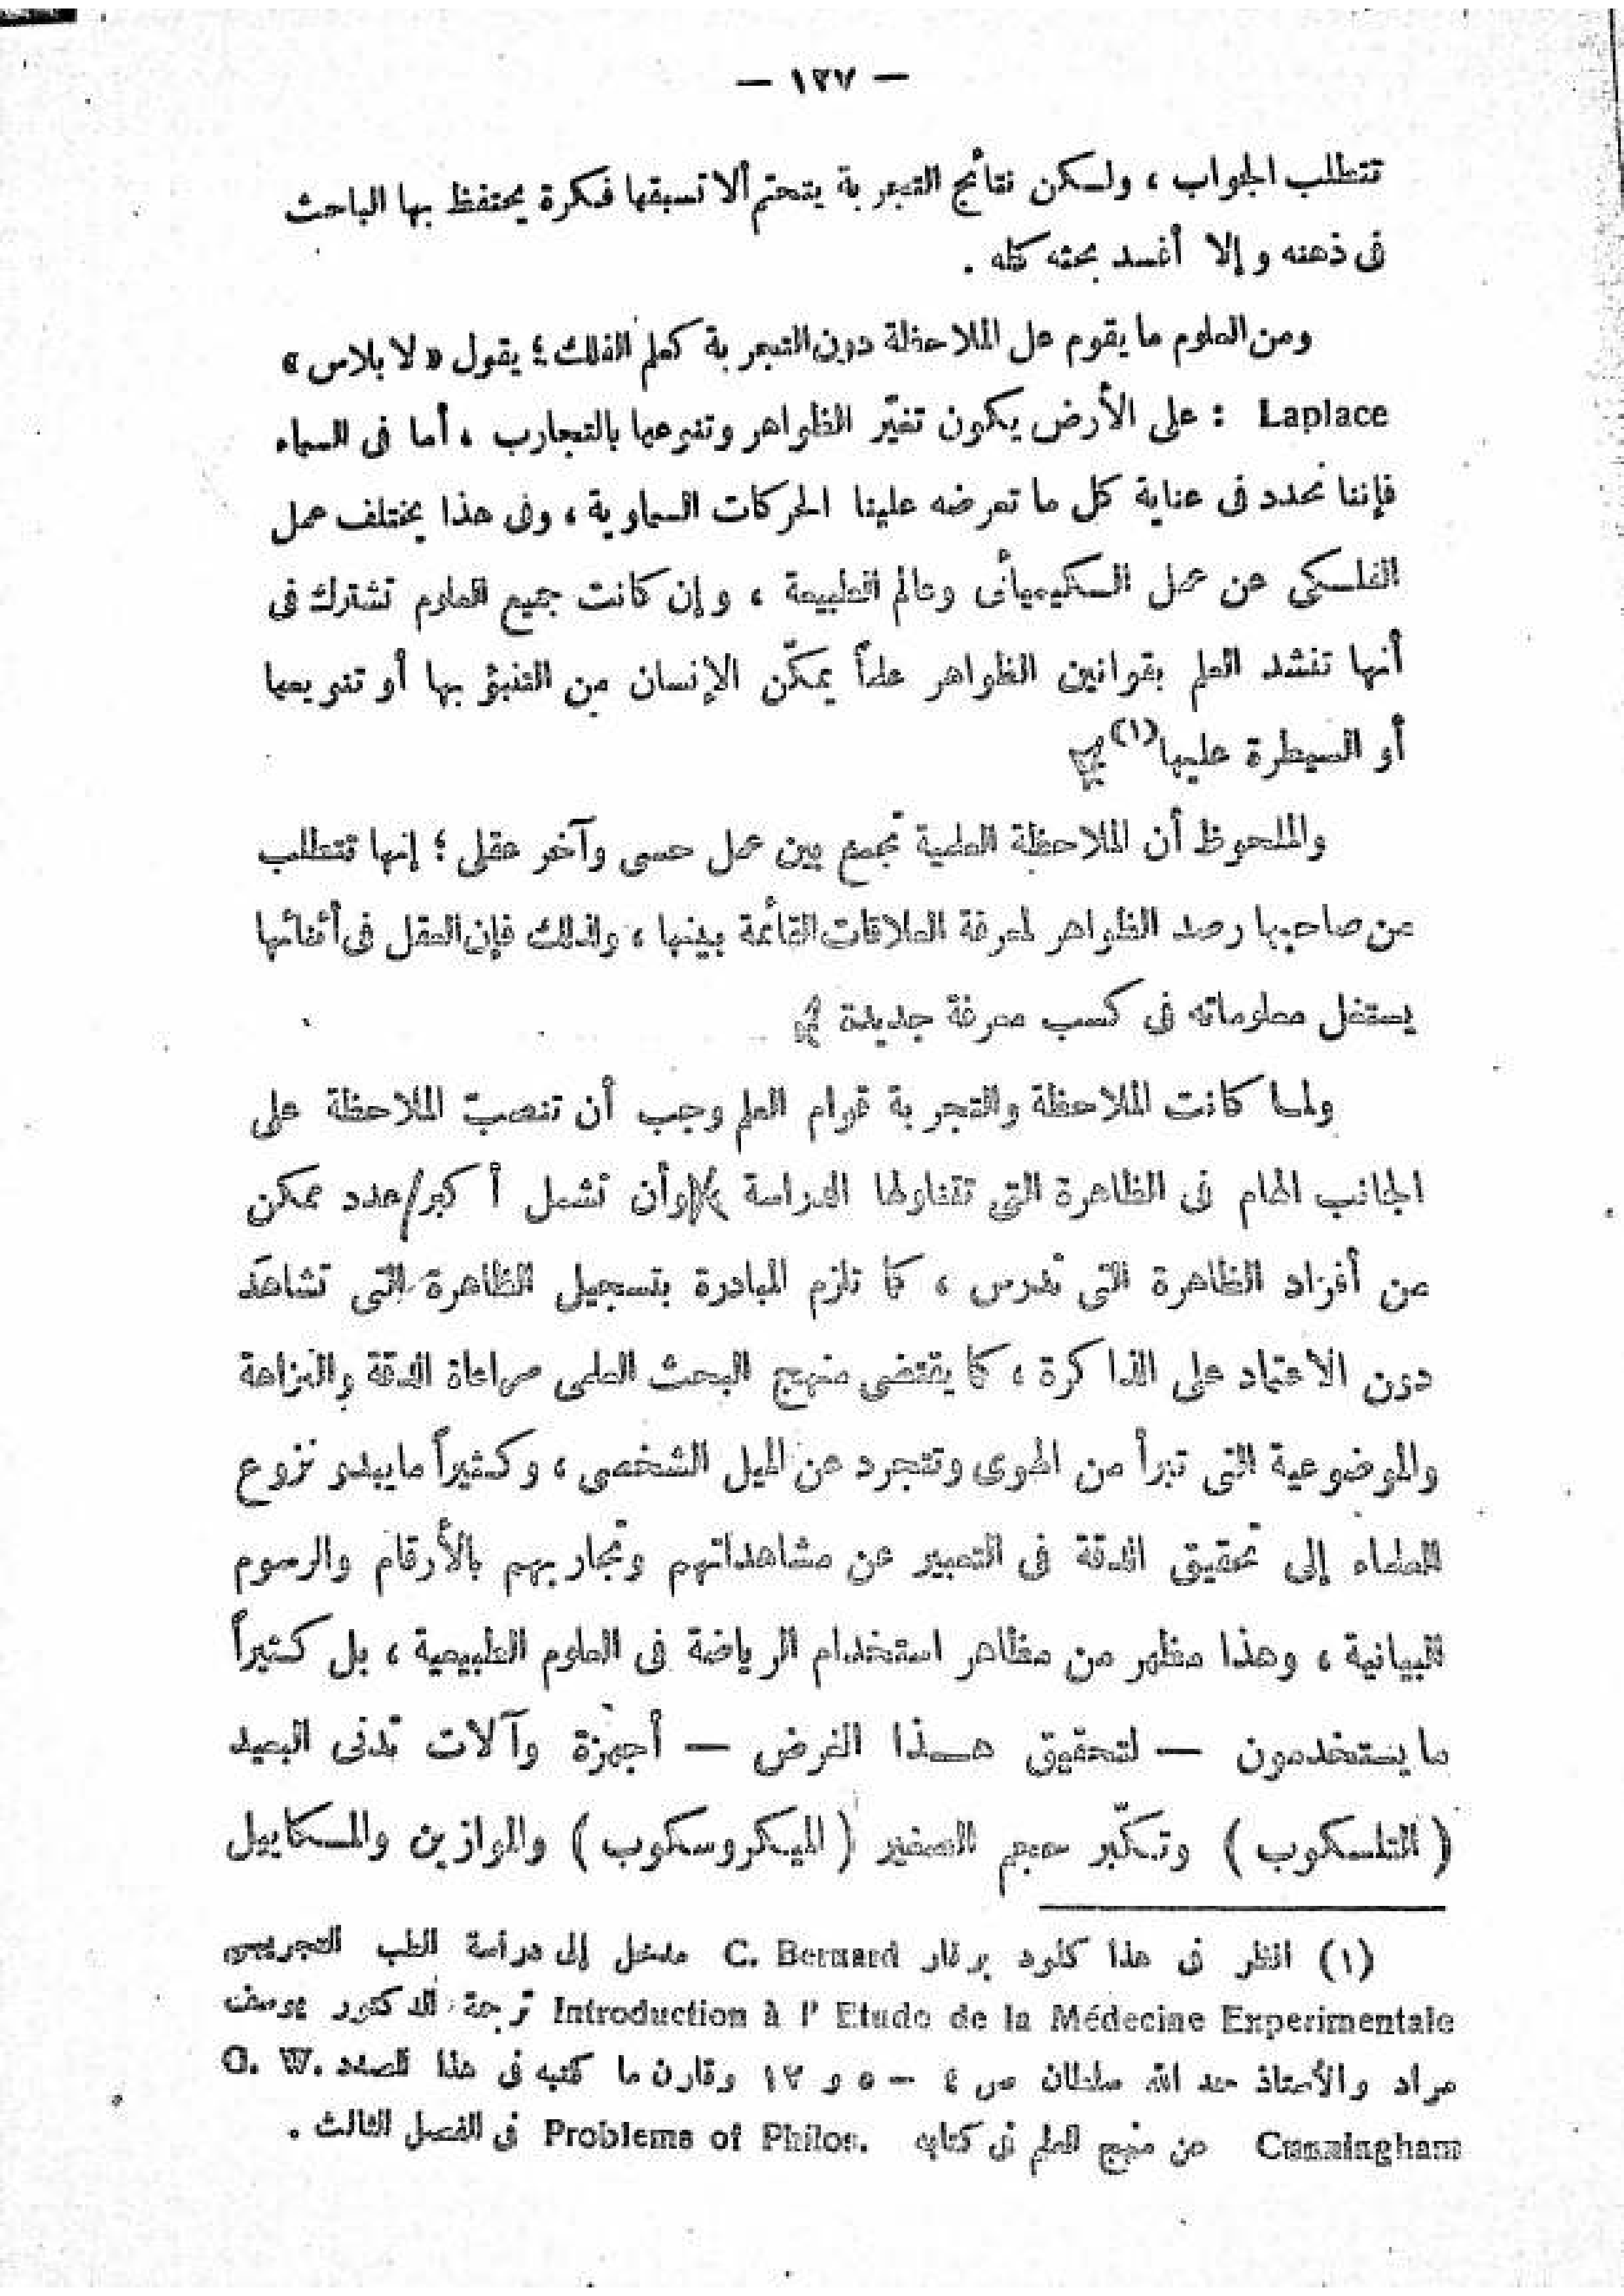 — ١٢٧ —
تتطلب الجواب ، ولكن نتائج التجربة يتحتم ألا تسبقها فكرة يحتفظ بها الباحث
فى ذهنه وإلا أفسد بحثه كله .
ومن العلوم ما يقوم على الملاحظة دون التجربة كعلم الفلك ؛ يقول « لابلاس »
Laplace : على الأرض يكون تغيّر الظواهر وتنوعها بالتجارب ، أما فى السماء
فإننا نحدد فى عناية كل ما تعرضه علينا الحركات السماوية ، وفى هذا يختلف عمل
الفلكى عن عمل الكيميائى وعالم الطبيعة ، وإن كانت جميع العلوم تشترك فى
أنها تنشد العلم بقوانين الظواهر علماً يمكّن الإنسان من التنبؤ بها أو تنويعها
أو السيطرة عليها (١)
والملحوظ أن الملاحظة العلمية تجمع بين عمل حسى وآخر عقلى ؛ إنها تتطلب
من صاحبها رصد الظواهر لمعرفة العلاقات القائمة بينها ، ولذلك فإن العقل فى أثنائها
يستغل معلوماته فى كسب معرفة جديدة
ولما كانت الملاحظة والتجربة قوام العلم وجب أن تنصبّ الملاحظة على
الجانب الهام فى الظاهرة التى تتناولها الدراسة وأن تشمل أكبر عدد ممكن
من أفراد الظاهرة التى تدرس ، كما تلزم المبادرة بتسجيل الظاهرة التى تشاهد
دون الاعتماد على الذاكرة ، كما يقتضى منهج البحث العلمى مراعاة الدقة والنزاهة
والموضوعية التى تبرأ من الهوى وتتجرد عن الميل الشخصى ، وكثيراً ما يبدو نزوع
العلماء إلى تحقيق الدقة فى التعبير عن مشاهداتهم وتجاربهم بالأرقام والرسوم
البيانية ، وهذا مظهر من مظاهر استخدام الرياضة فى العلوم الطبيعية ، بل كثيراً
ما يستخدمون — لتحقيق هذا الغرض — أجهزة وآلات تدنى البعيد
( التلسكوب ) وتكبّر حجم الصغير ( الميكروسكوب ) والموازين والمكاييل
(١) انظر فى هذا كلود برنار C. Bernard مدخل إلى دراسة الطب التجريبى
Introduction à l' Etude de la Médecine Experimentale ترجمة الدكتور يوسف
مراد والأستاذ حمد الله سلطان ص ٤ – ٥ و ١٧ وقارن ما كتبه فى هذا الصدد G. W.
Cunningham عن منهج العلم فى كتابه Problems of Philos. فى الفصل الثالث .